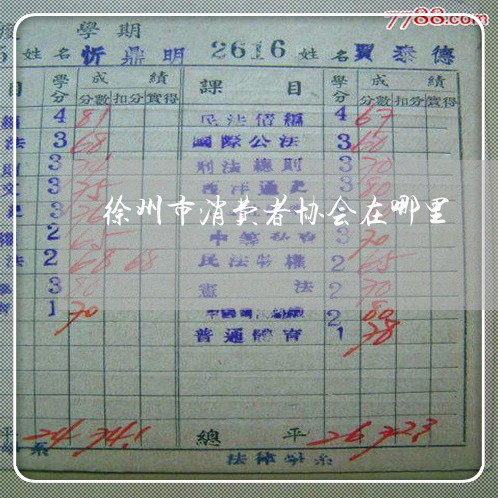 7788.com
學期
姓名 忻鼎明 2616 姓名 賈泰德
目 學分 成績 課目 學分 成績
分數 扣分 實得 分數 扣分 實得
4 81 民法債編 4 67
法 3 68 國際公法 3 60
3 刑法總則 3 70
3 75 西洋通史 3 80
徐州市消费者协会在哪里
2 65 3 70
法 2 68 68 民法物權 2 65
3 80 憲法 2 70
1 70 2 80
普通體育 1 78
平 24 74.1 總平 26 72.3
系 法律學系